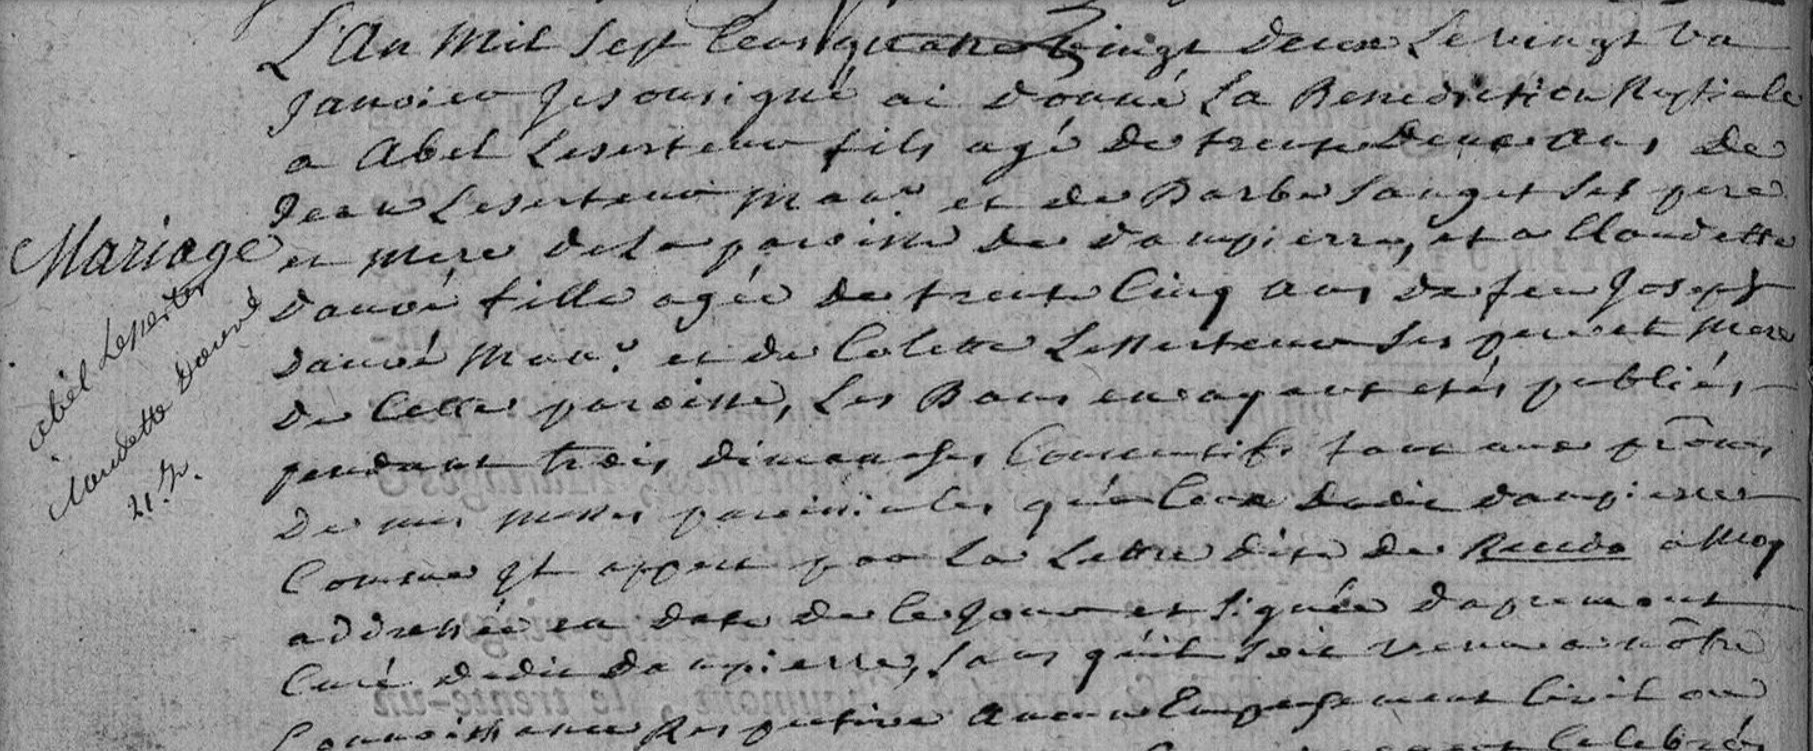 L'An Mil Sept Cens quatre Vingt Deux Le vingt un
Janvier Je sousigné ai donné La Benediction Nuptiale
a Abel Leserteur fils agé De trente Deux ans, De
Jean Leserteur Manr et de Barbe Sauget ses pere
Mariage
et mere de La paroisse De Dampierre, et a Claudette
Dauvé fille agée de trente Cinq ans De feu Joseph
Dauvé Manr. et de Colette Lesserteur ses pere et Mere
De Cette paroisse, Les Bans en ayant etés publiés
pendant trois dimanches Consecutifs tant aux prônes
De nos messes paroissiales qu'a Ceux Dudit Dampierre
Comme Jl appert par La Lettre dite de Recedo a Moy
addressée en date de Ce jour et signée Dapremont
Curé dudit Dampierre, sans qu'il soit venu a nôtre
Connoissance Respective Aucun Empeschement Civil ou
Celebré
Abel Leserteur
Claudette Dauvé